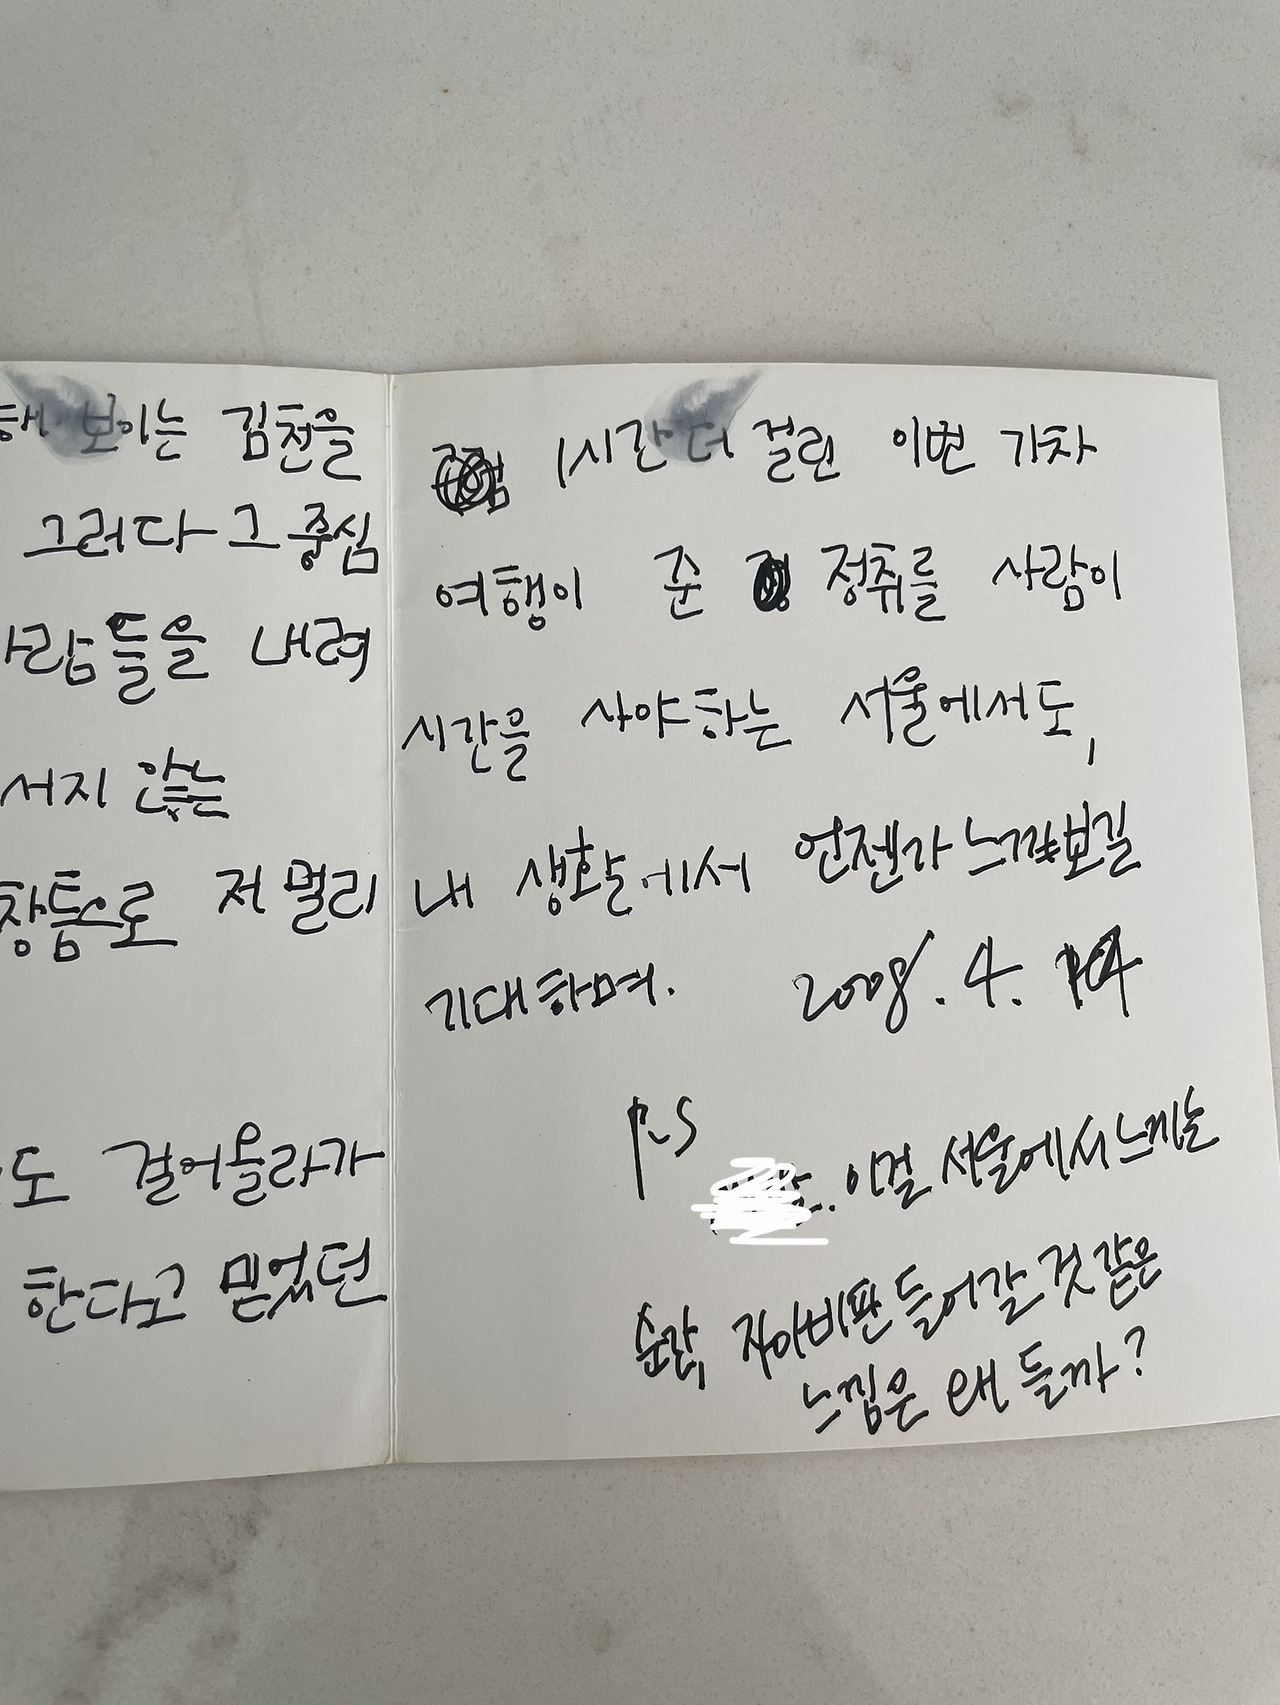 보이는 김천을
그러다 그 중심
사람들을 내려
서지 않는
창틈으로 저 멀리
도 걸어올라가
한다고 믿었던
1시간 더 걸린 이번 기차
여행이 준 정취를 사람이
시간을 사야하는 서울에서도,
내 생활에서 언젠가 느껴보길
기대하며. 2008. 4.
P.S
이걸 서울에서 느끼는
순간, 자아비판 들어갈 것 같은
느낌은 왜 들까?